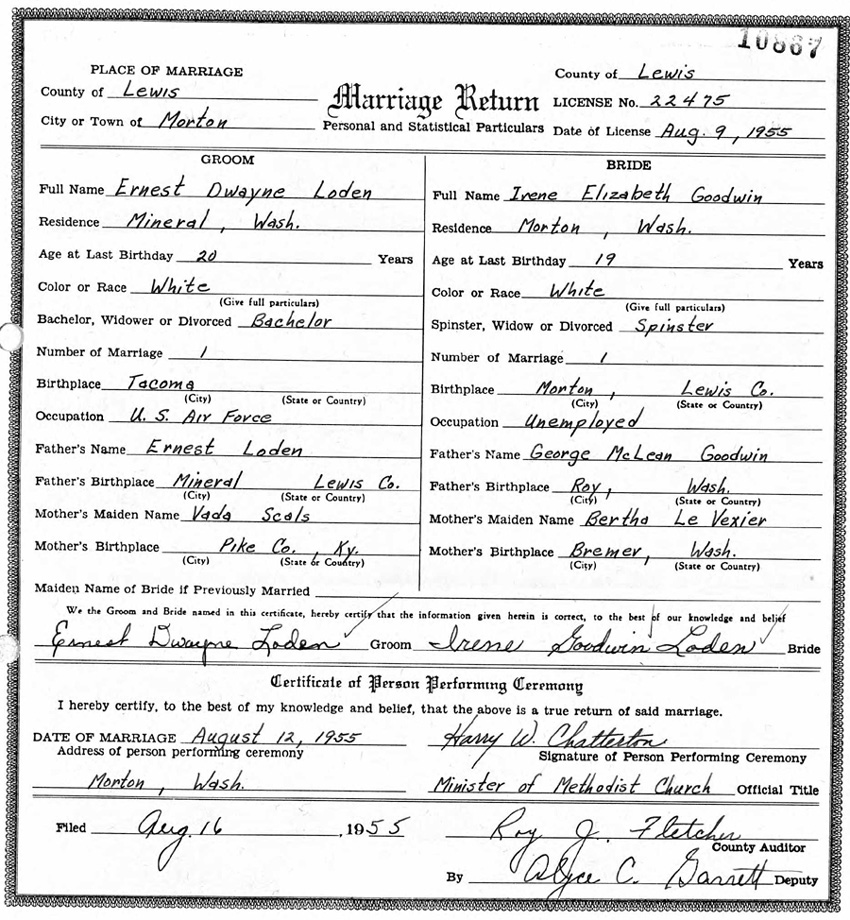 10887
PLACE OF MARRIAGE
County of Lewis
City or Town of Morton
Marriage Return
Personal and Statistical Particulars
County of Lewis
LICENSE No. 22475
Date of License Aug. 9, 1955
GROOM
Full Name Ernest Dwayne Loden
Residence Mineral, Wash.
Age at Last Birthday 20 Years
Color or Race White
(Give full particulars)
Bachelor, Widower or Divorced Bachelor
Number of Marriage 1
Birthplace Tacoma
(City) (State or Country)
Occupation U. S. Air Force
Father's Name Ernest Loden
Father's Birthplace Mineral Lewis Co.
(City) (State or Country)
Mother's Maiden Name Vada Scals
Mother's Birthplace Pike Co., Ky.
(City) (State or Country)
BRIDE
Full Name Irene Elizabeth Goodwin
Residence Morton, Wash.
Age at Last Birthday 19 Years
Color or Race White
(Give full particulars)
Spinster, Widow or Divorced Spinster
Number of Marriage 1
Birthplace Morton, Lewis Co.
(City) (State or Country)
Occupation Unemployed
Father's Name George McLean Goodwin
Father's Birthplace Roy, Wash.
(City) (State or Country)
Mother's Maiden Name Bertha Le Vexier
Mother's Birthplace Bremer, Wash.
(City) (State or Country)
Maiden Name of Bride if Previously Married
We the Groom and Bride named in this certificate, hereby certify that the information given herein is correct, to the best of our knowledge and belief
Ernest Dwayne Loden Groom Irene Goodwin Loden Bride
Certificate of Person Performing Ceremony
I hereby certify, to the best of my knowledge and belief, that the above is a true return of said marriage.
DATE OF MARRIAGE August 12, 1955 Harry W. Chatterton
Address of person performing ceremony Signature of Person Performing Ceremony
Morton, Wash. Minister of Methodist Church Official Title
Filed Aug. 16, 1955 Roy J. Fletcher
County Auditor
By Alyce C. Garrett Deputy